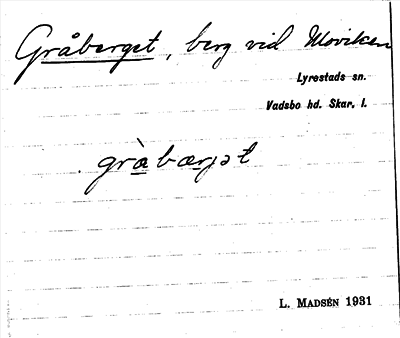 Gråberget, berg vid Moviken
Lyrestads sn.
Vadsbo hd. Skar. l.
gràbærjət
L. MADSÉN 1931